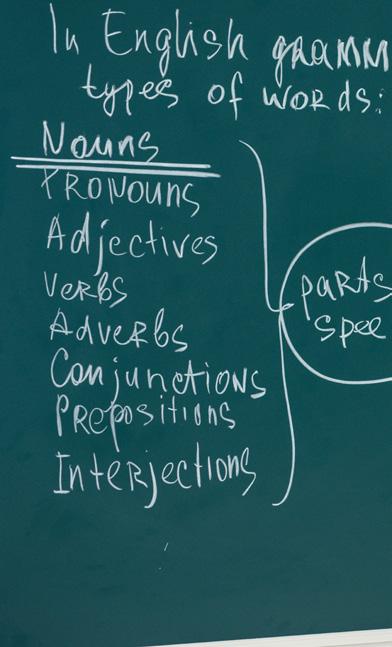 In English gramm
types of words:
Nouns
PRONouns
Adjectives
Verbs
Adverbs
Conjunctions
Prepositions
Interjections
parts
spee